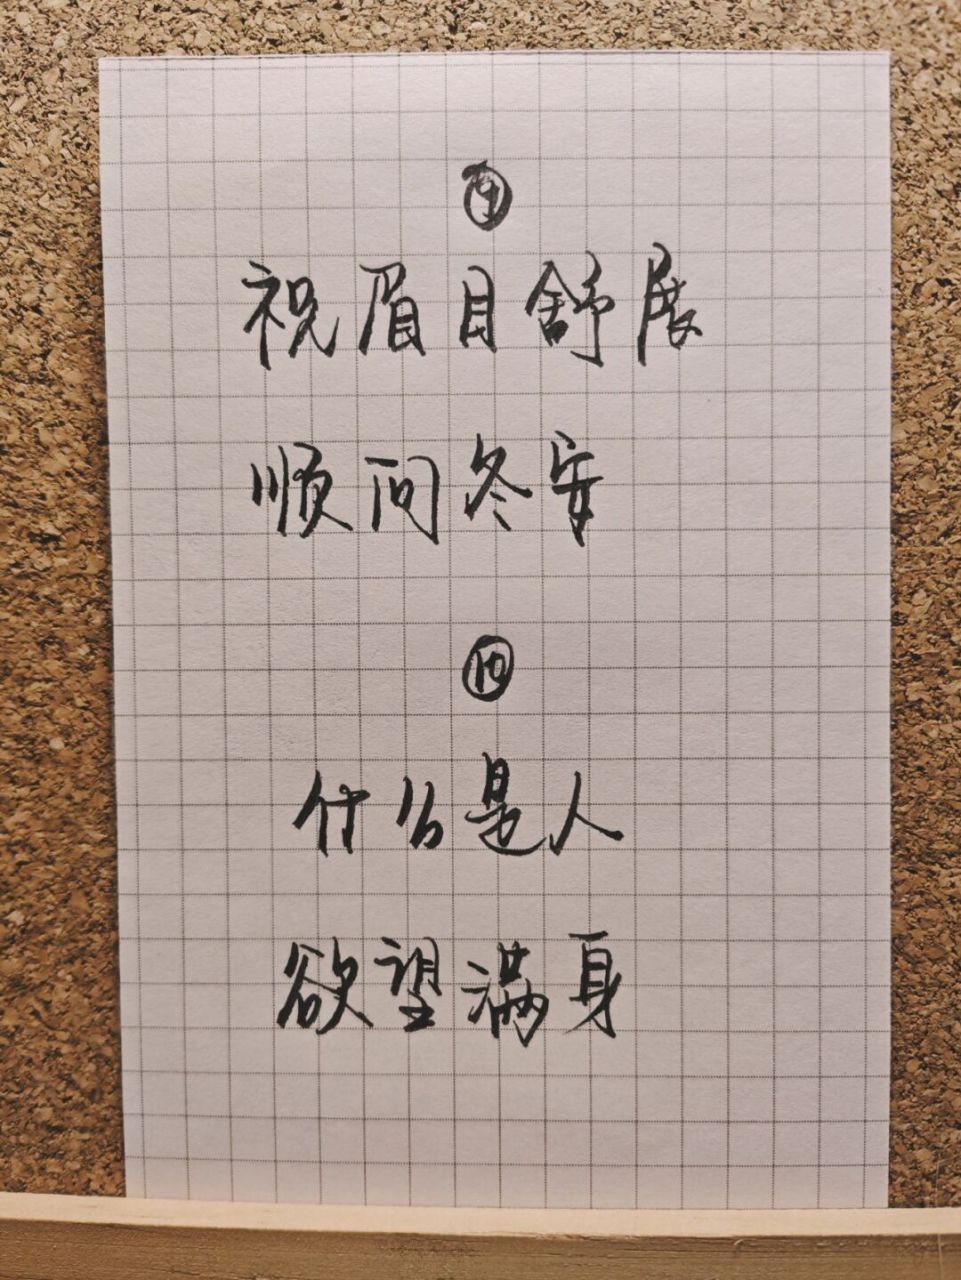 ⑨
祝眉目舒展
顺问冬安
⑩
什么是人
欲望满身